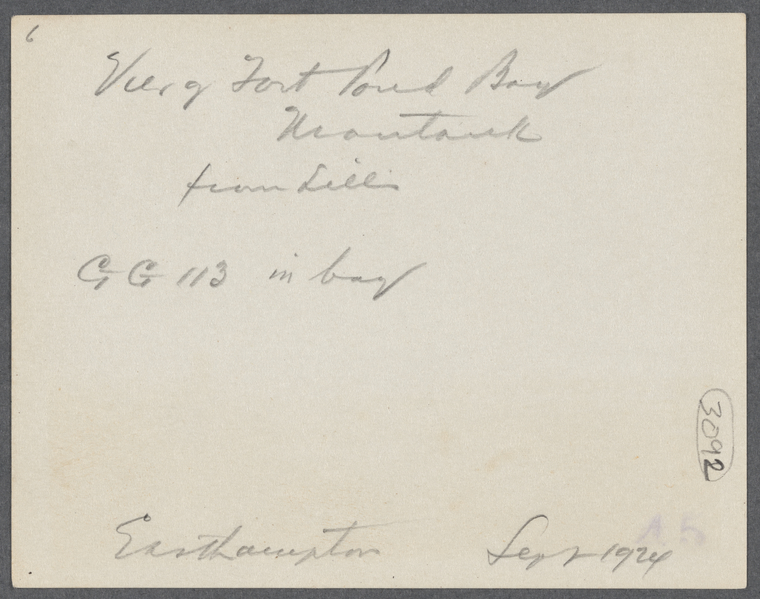 6
View of Fort Pond Bay
Montauk
from hills
CG 113 in bay
3092
Easthampton Sept 1924